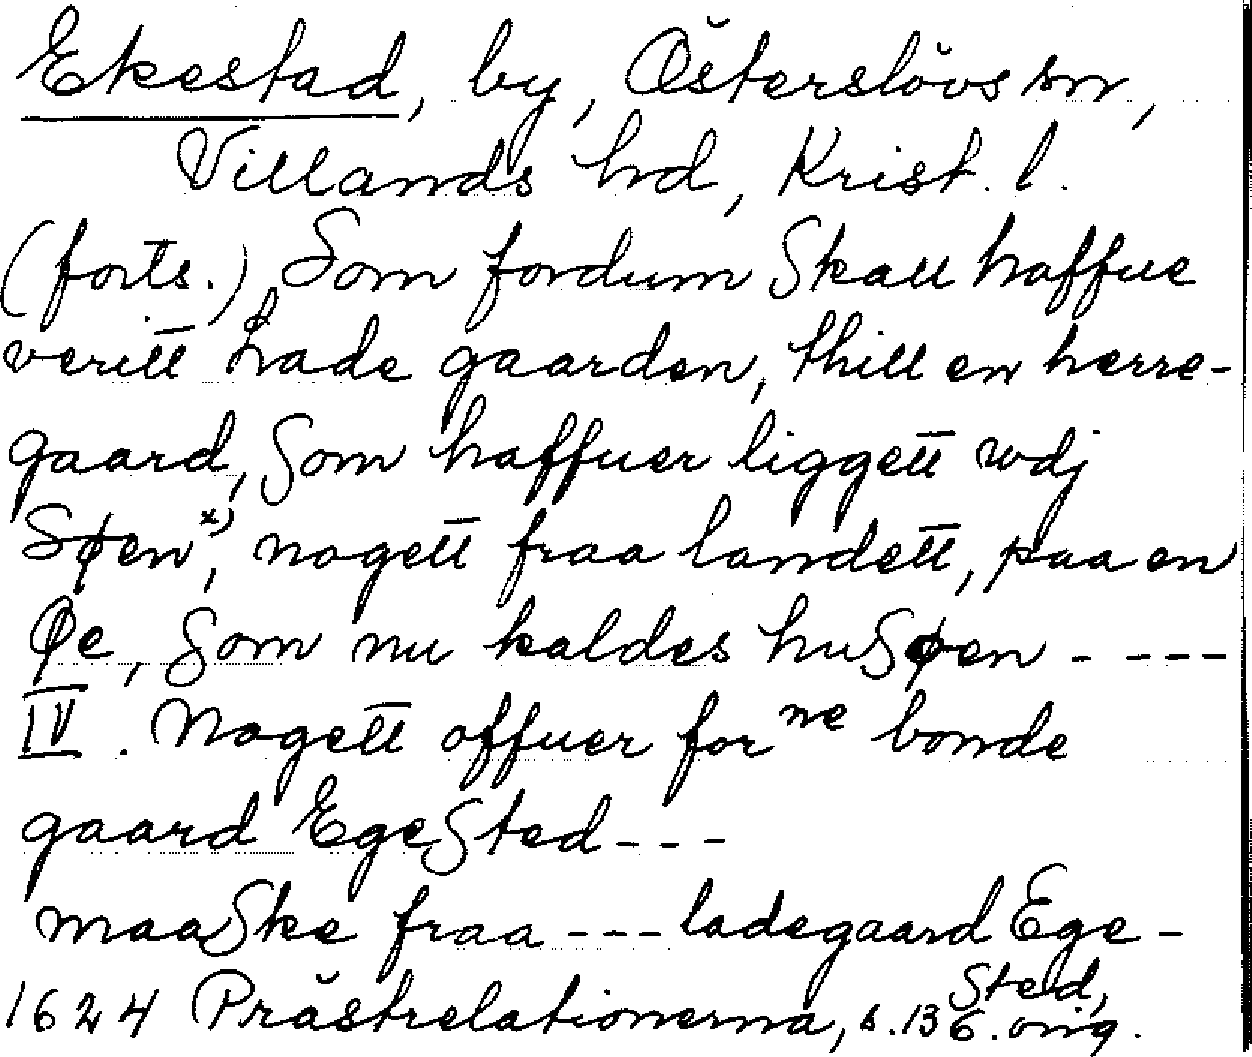 Ekestad, by, Österslövs sn,
Villands hd, Krist. l.
(forts.) Som fordum Skall haffue
veritt Lade gaarden, thill en herre-
gaard, Som haffuer liggett wdj
Søen x), nogett fraa landett, paa en
Øe, Som nu kaldes huSøen - ---
IV. Nogett offuer for ne bonde
gaard EgeSted---
maaSke fraa --- ladegaard Ege-
Sted,
1624 Prästrelationerna, s. 136. orig.